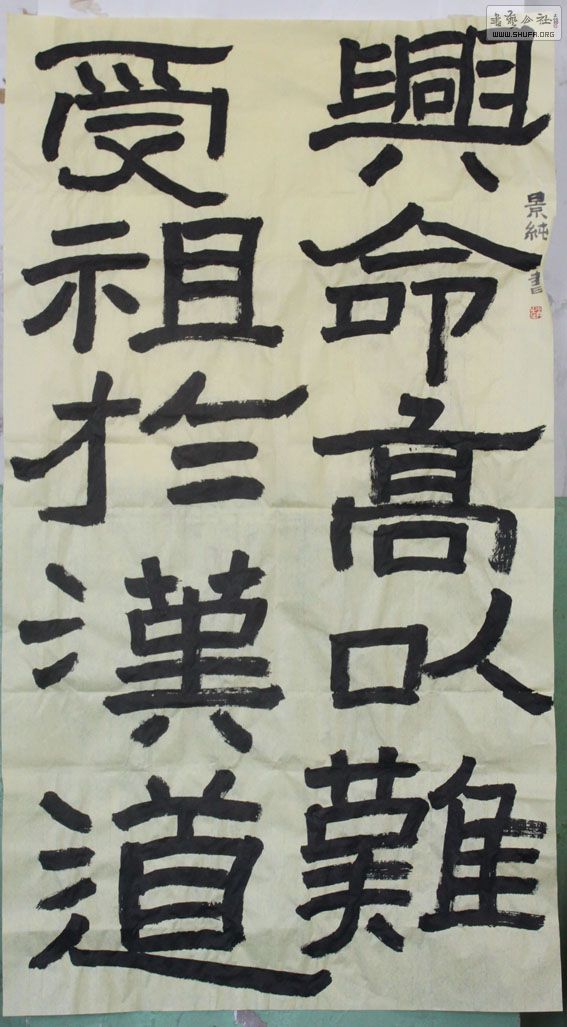 興命髙以難
受祖於漢道
景純書
書藝公社
WWW.SHUFA.ORG